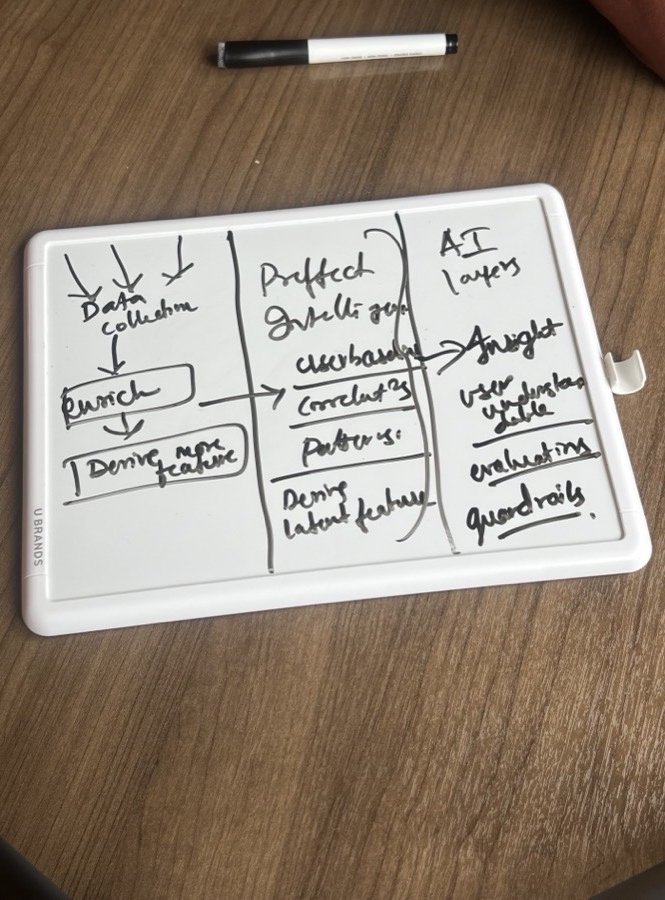 Data
collection
enrich
Derive more
feature
Intelligen
userbaseline
correlat
patterns.
Derive
latent feature
AI
layers
Insight
user
understan
dable
evaluations
guardrails.
U BRANDS